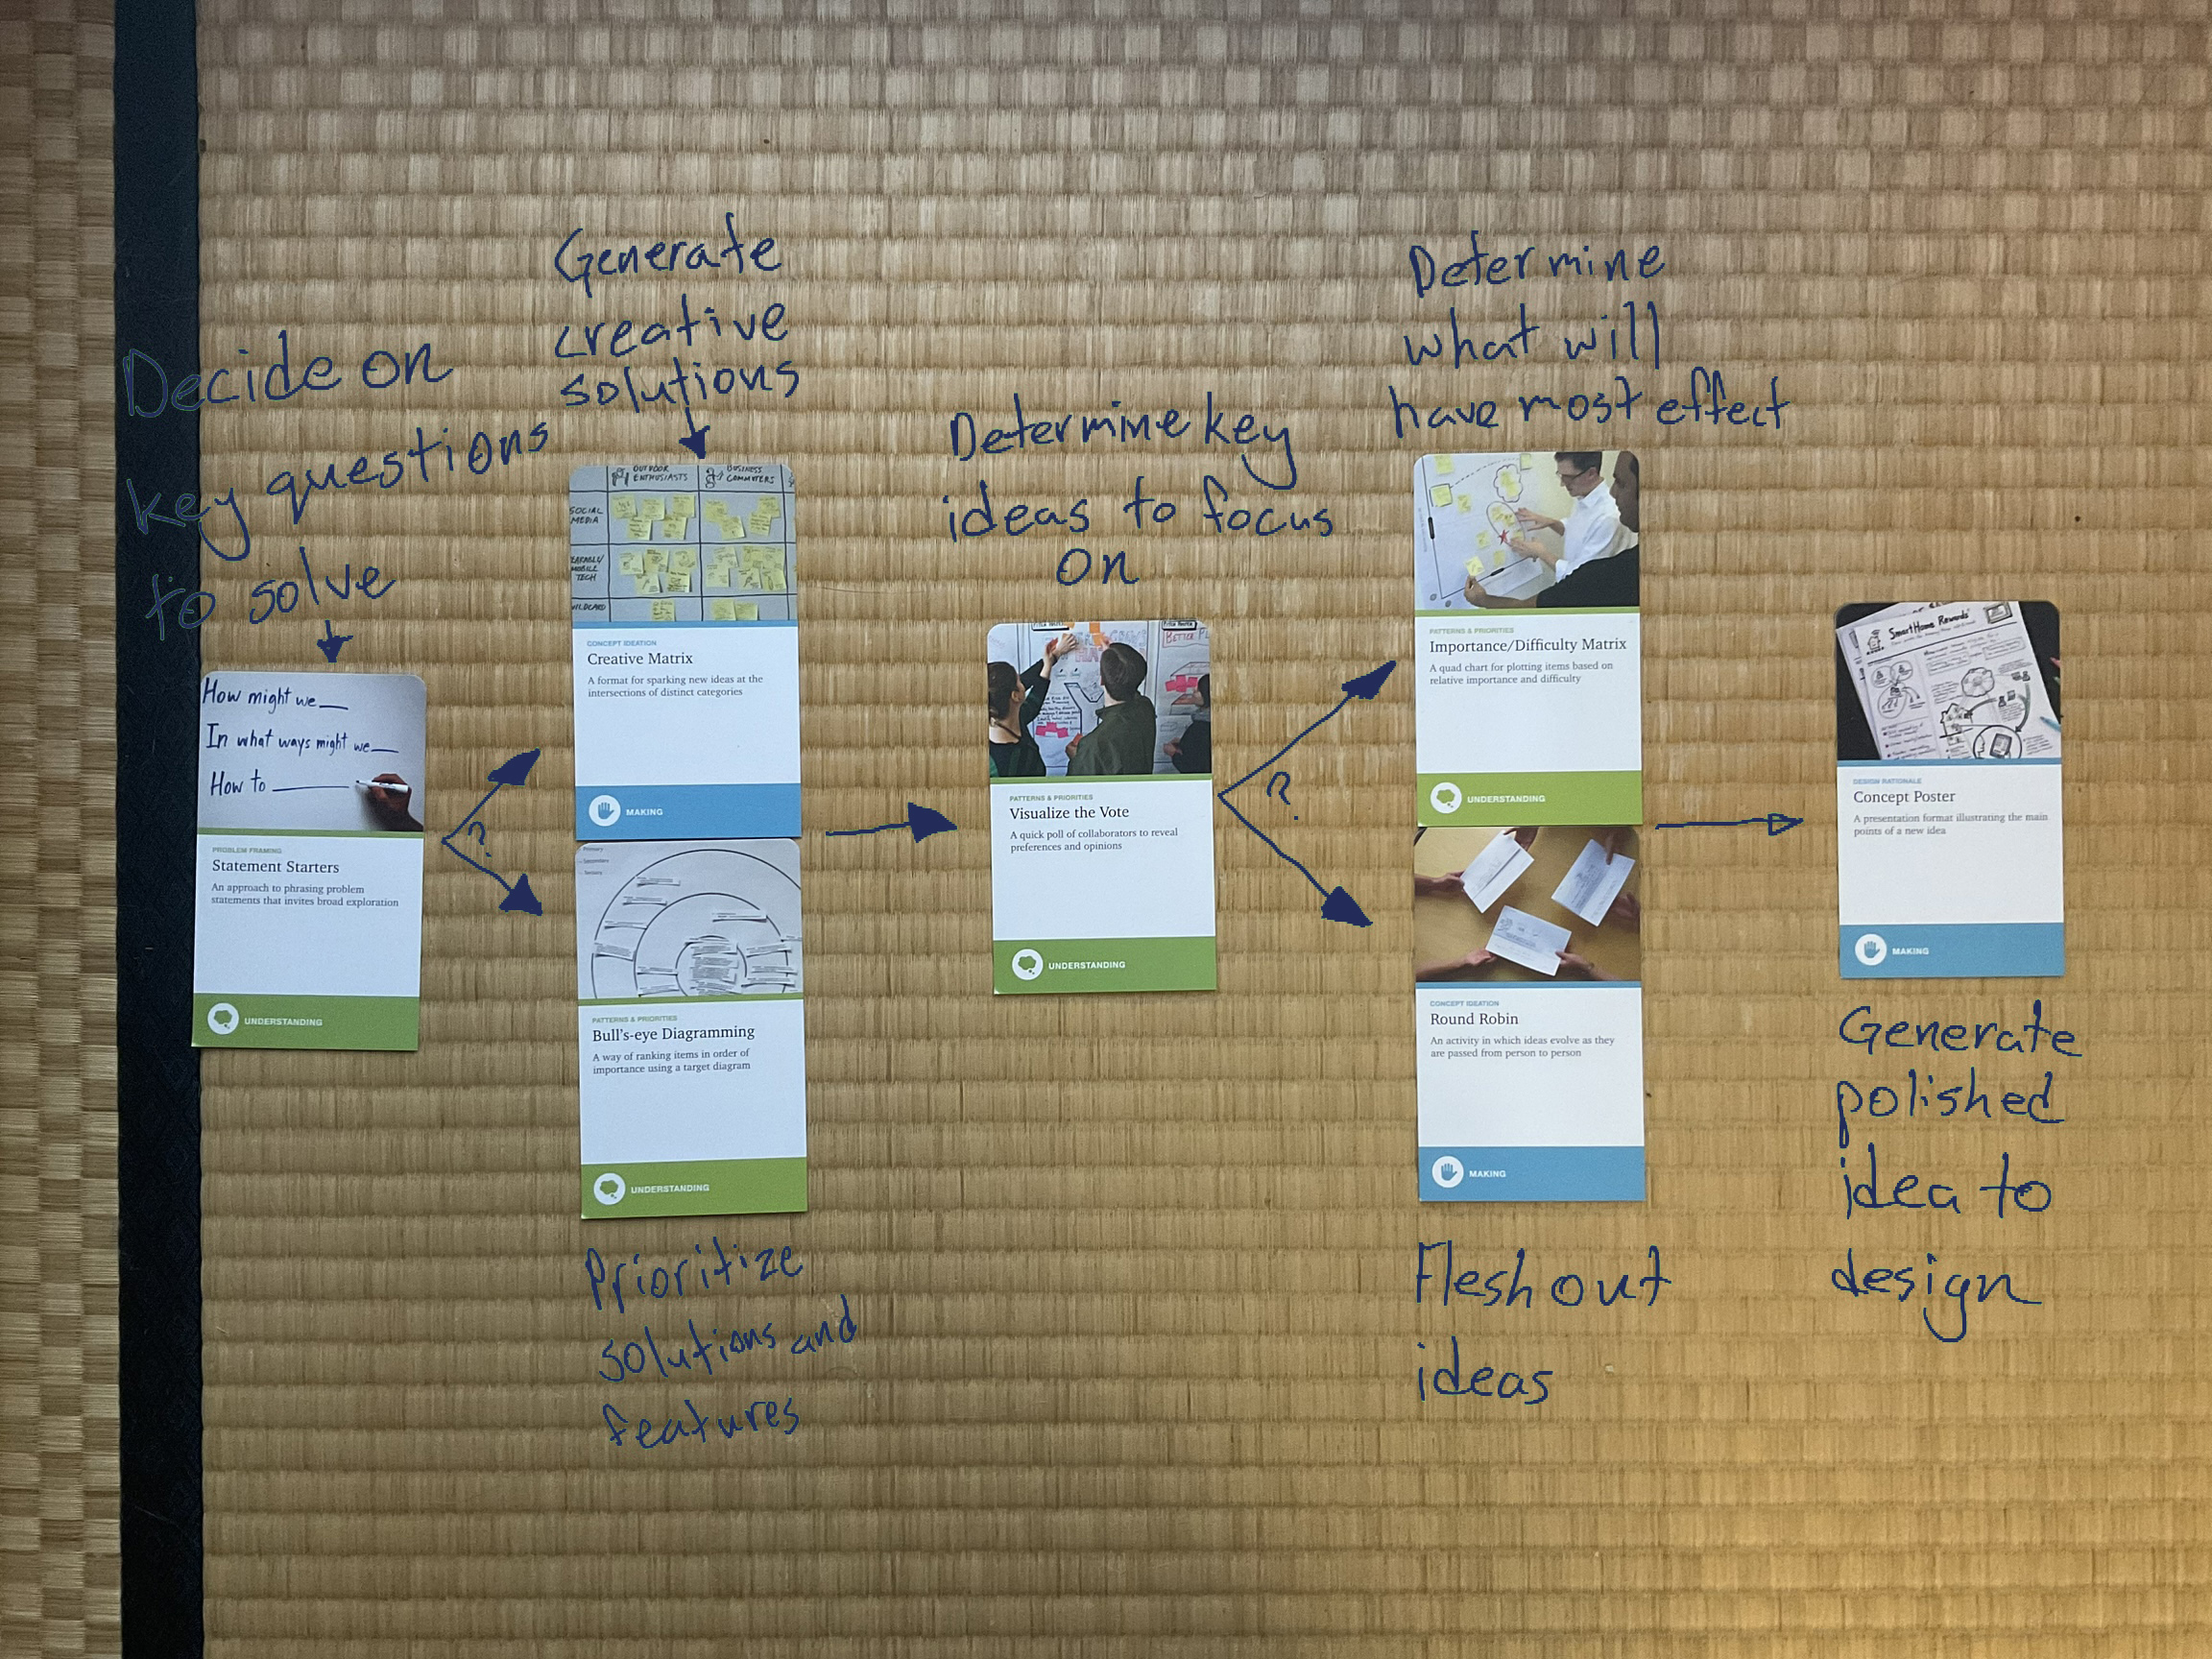 Decide on
key questions
to solve
How might we
In what ways might we
How to
PROBLEM FRAMING
Statement Starters
An approach to phrasing problem
statements that invites broad exploration
UNDERSTANDING
?
Generate
creative
solutions
OUTDOOR
ENTHUSIASTS
BUSINESS
COMMUTERS
SOCIAL
MEDIA
TECH
WILDCARD
CONCEPT IDEATION
Creative Matrix
A format for sparking new ideas at the
intersections of distinct categories
MAKING
Primary
Secondary
Tertiary
PATTERNS & PRIORITIES
Bull's-eye Diagramming
A way of ranking items in order of
importance using a target diagram
UNDERSTANDING
Prioritize
solutions and
features
Determine key
ideas to focus
on
PATTERNS & PRIORITIES
Visualize the Vote
A quick poll of collaborators to reveal
preferences and opinions
UNDERSTANDING
?
Determine
what will
have most effect
PATTERNS & PRIORITIES
Importance/Difficulty Matrix
A quad chart for plotting items based on
relative importance and difficulty
UNDERSTANDING
CONCEPT IDEATION
Round Robin
An activity in which ideas evolve as they
are passed from person to person
MAKING
Flesh out
ideas
SmartHome Rewards
DESIGN RATIONALE
Concept Poster
A presentation format illustrating the main
points of a new idea
MAKING
Generate
polished
idea to
design